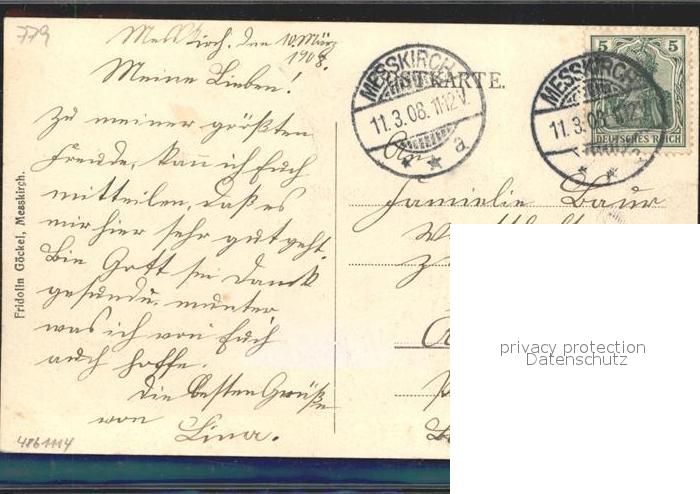 779
Messkirch, den 10. März
1908.
Meine Lieben!
Zu meiner größten
Freude, kann ich Euch
mitteilen, daß es
mir hier sehr gut geht.
Bin Gott sei Dank
gesund u. munter
was ich von Euch
auch hoffe.
Die besten Grüße
von
Lina.
4861114
Fridolin Göckel, Messkirch.
POSTKARTE.
MESSKIRCH
11.3.08.11-12V.
a
MESSKIRCH
11.3.08.11-12V.
5 5
DEUTSCHES REICH
An
Familie Baur
privacy protection
Datenschutz